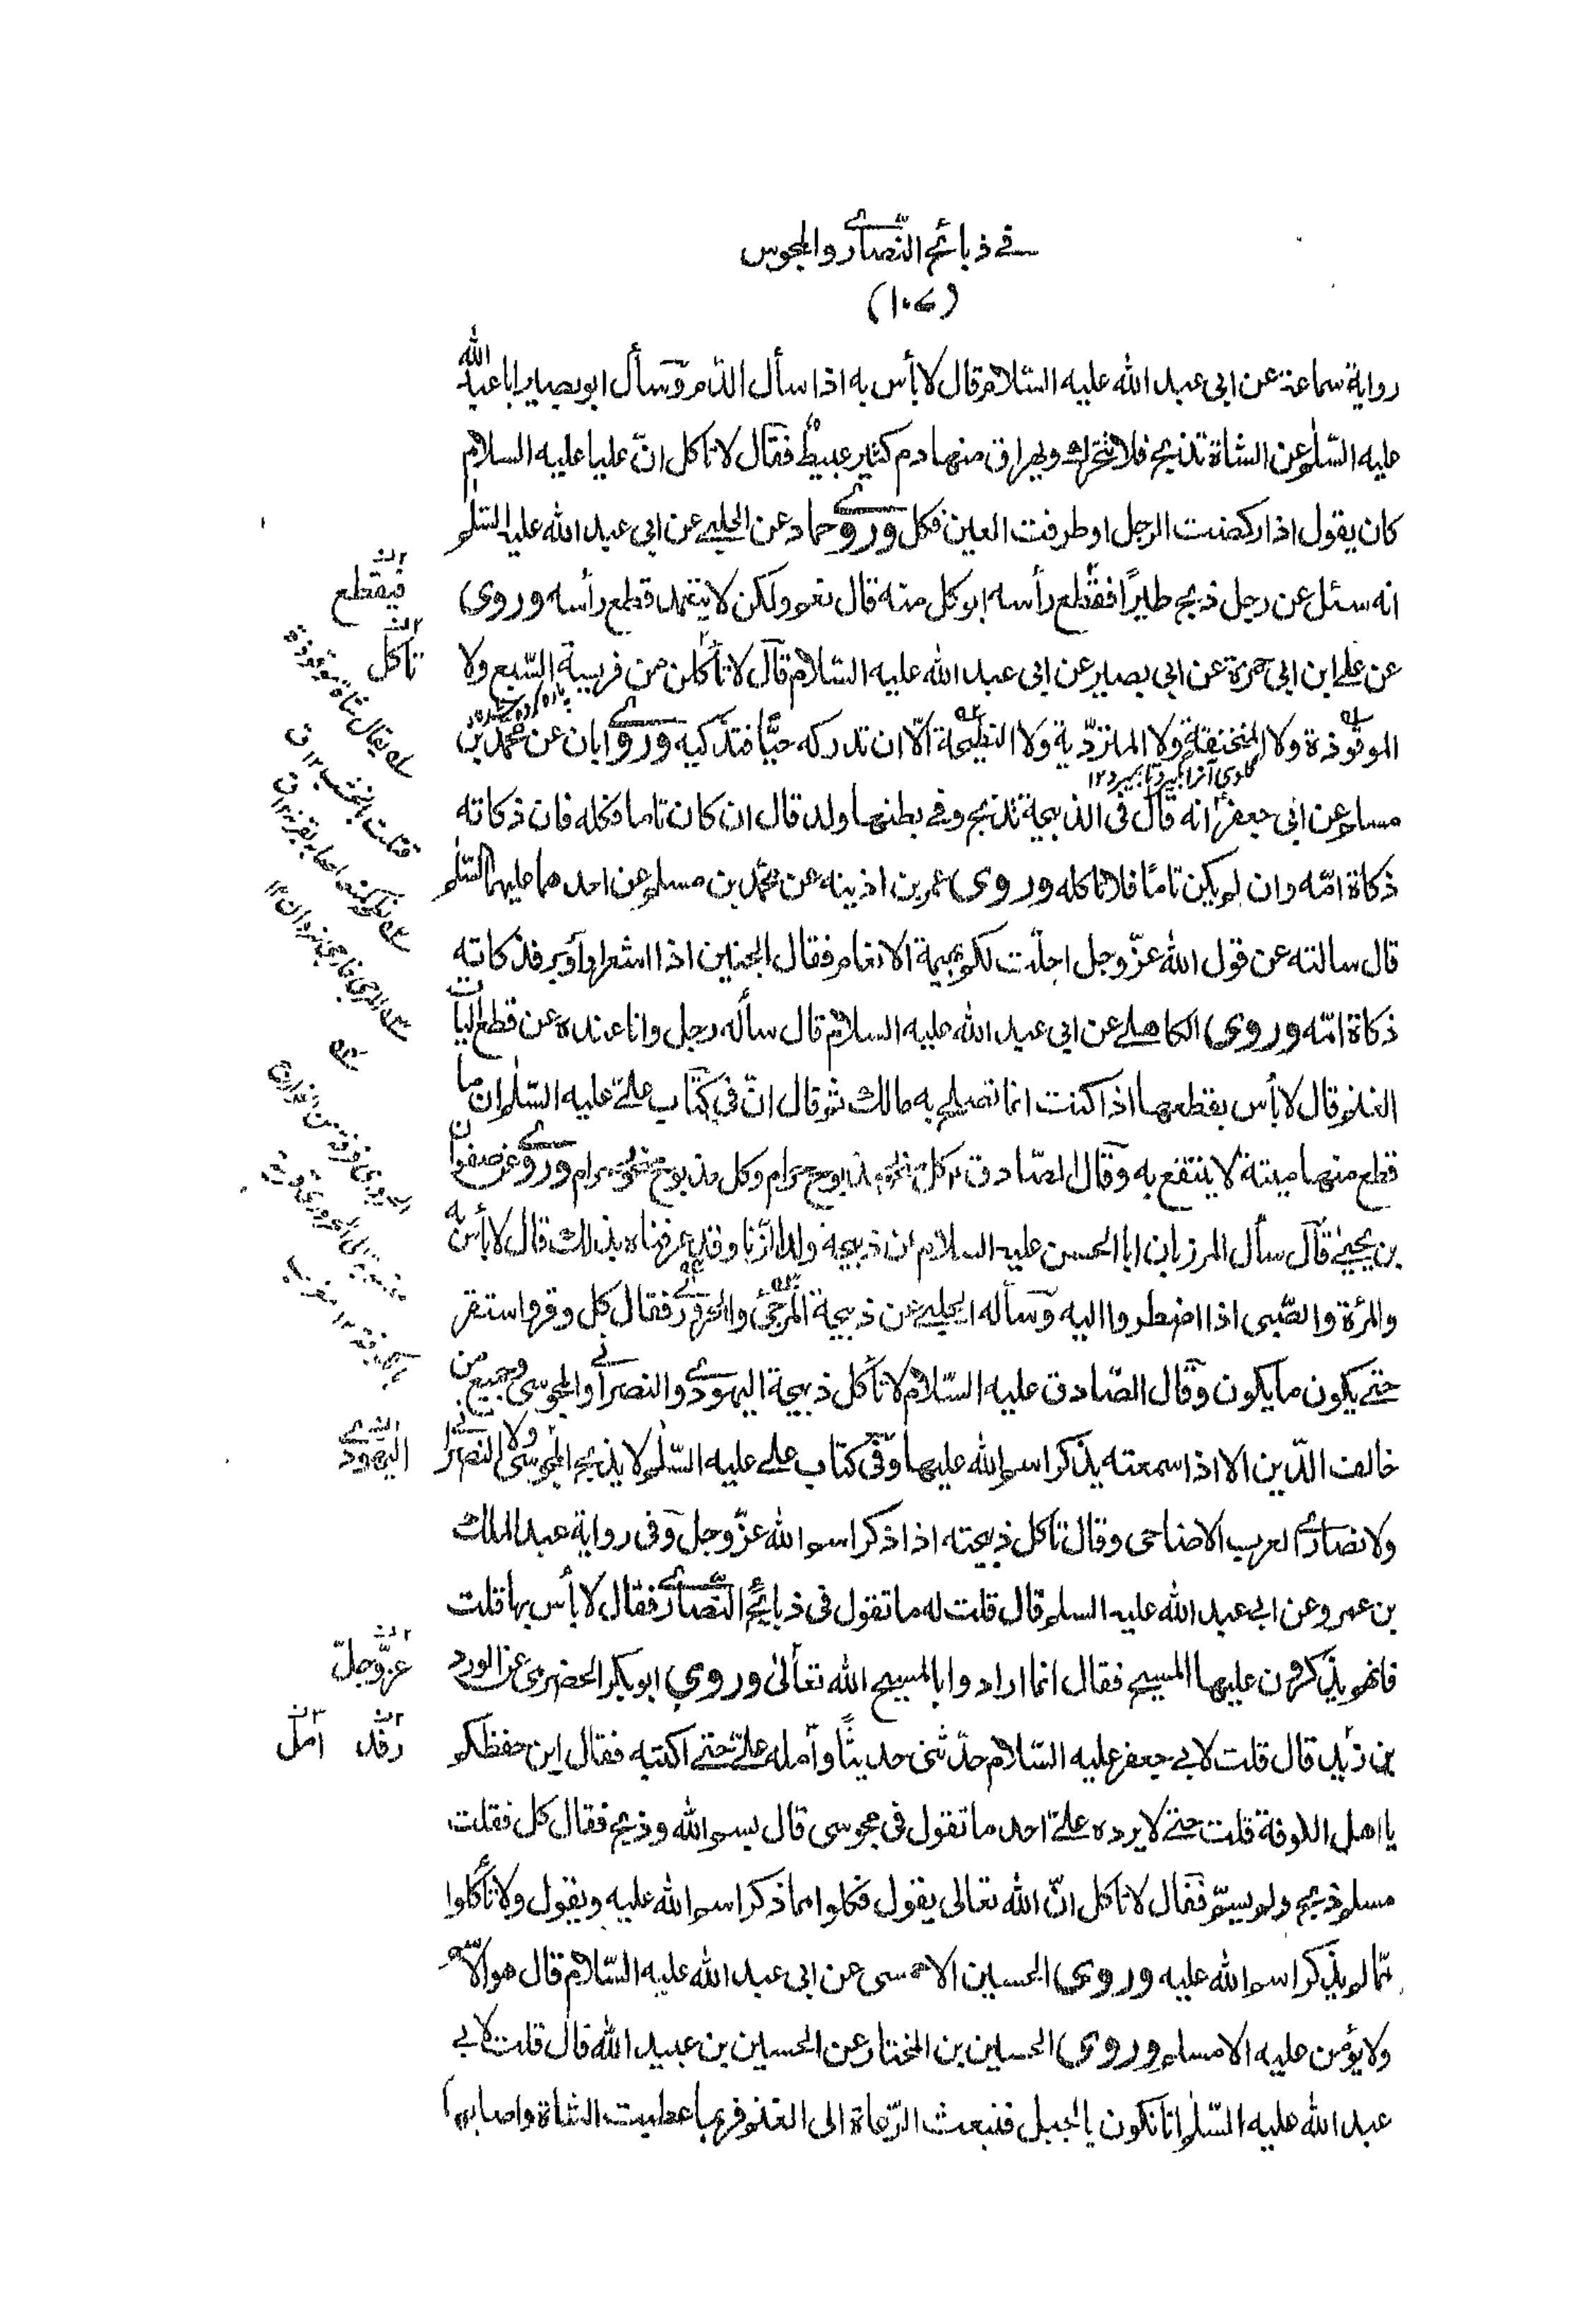 في ذبائح النصارى والمجوس
(١٠٧)
رواية سماعة عن ابى عبد الله عليه السّلام قال لا بأس به اذا سأل الدّم وسأل ابو بصير ابا عبد الله
عليه السّلم عن الشاة تذبح فلا تتحرّك ويهراق منها دم كثير عبيط فقال لا تاكل انّ عليا عليه السلام
كان يقول اذا ركضت الرجل او طرفت العين فكل وروى حماد عن الحلبي عن ابى عبد الله عليه السّلم
انه سئل عن رجل ذبح طيرًا فقطع رأسه ايوكل منه قال نعم ولكن لا يتعمد قطع رأسه وروى
عن علي ابن ابى حمزة عن ابي بصير عن ابى عبد الله عليه السّلام قال لا تأكلن من فريسة السّبع ولا
الموقوذة ولا المنخنقة ولا المتردّية ولا النطيحة الّا ان تدركه حيًّا فتذكيه وروى ابان عن محمد بن
مسلم عن ابي جعفر انه قال فى الذبيحة تذبح وفي بطنها ولد قال ان كان تاما فكله فان ذكاته
ذكاة امّه وان لم يكن تامًا فلا تاكله وروى عمر بن اذينه عن محمّد بن مسلم عن احدهما عليهما السّلم
قال سالته عن قول الله عزّ وجل احلّت لكم بهيمة الانعام فقال الجنين اذا اشعر او اوبر فذكاته
ذكاة امّه وروى الكاهلي عن ابى عبد الله عليه السلام قال سأله رجل وانا عنده عن قطع اليات
الغنم قال لا بأس بقطعها اذا كنت انما تصلح به مالك ثم قال انّ في كتاب عليّ عليه السّلم ان ما
قطع منها ميتة لا ينتفع به وقال الصّادق كل منحور مذبوح حرام وكل مذبوح منحور حرام وروى عن صفوان
بن يحيى قال سأل المرزبان ابا الحسن عليه السلام عن ذبيحة ولد الزّنا وقد عرفناه بذلك قال لا بأس به
والمرأة والصّبى اذا اضطروا اليه وسأله الحلبي عن ذبيحة المرجئ والحرورى فقال كل وقر واستقر
حتى يكون ما يكون وقال الصّادق عليه السّلام لا تأكل ذبيحة اليهودى والنصرانى والمجوسى وجميع من
خالف الدّين الا اذا سمعته يذكر اسم الله عليها وفى كتاب علي عليه السّلم لا يذبح المجوسى ولا النصرانى
ولا نصارى العرب الاضاحى وقال تاكل ذبيحته اذا ذكر اسم الله عزّ وجل وفى رواية عبد الملك
بن عمرو عن ابى عبد الله عليه السلم قال قلت له ما تقول فى ذبائح النّصارى فقال لا بأس بها قلت
فانهم يذكرون عليها المسيح فقال انما ارادوا بالمسيح الله تعالى وروى ابو بكر الحضرمى عن الورد
بن زيد قال قلت لابي جعفر عليه السّلام حدّثنى حديثًا وأمله عليّ حتى اكتبه فقال اين حفظكم
يا اهل الكوفة قلت حتى لا يرده عليّ احد ما تقول فى مجوسى قال بسم الله وذبح فقال كل فقلت
مسلم ذبح ولم يسمّ فقال لا تاكل انّ الله تعالى يقول فكلوا مما ذكر اسم الله عليه ويقول ولا تأكلوا
ممّا لم يذكر اسم الله عليه وروى الحسين الاحمسى عن ابى عبد الله عليه السّلام قال هو الاسم
ولا يؤمن عليه الا مسلم وروى الحسين بن المختار عن الحسين بن عبيد الله قال قلت لابي
عبد الله عليه السّلم انا نكون بالجبل فنبعث الرّعاة الى الغنم فربما عطبت الشاة واصابها
فيقطع
تأكل
اليهودى
عزّ وجلّ
رفد امل